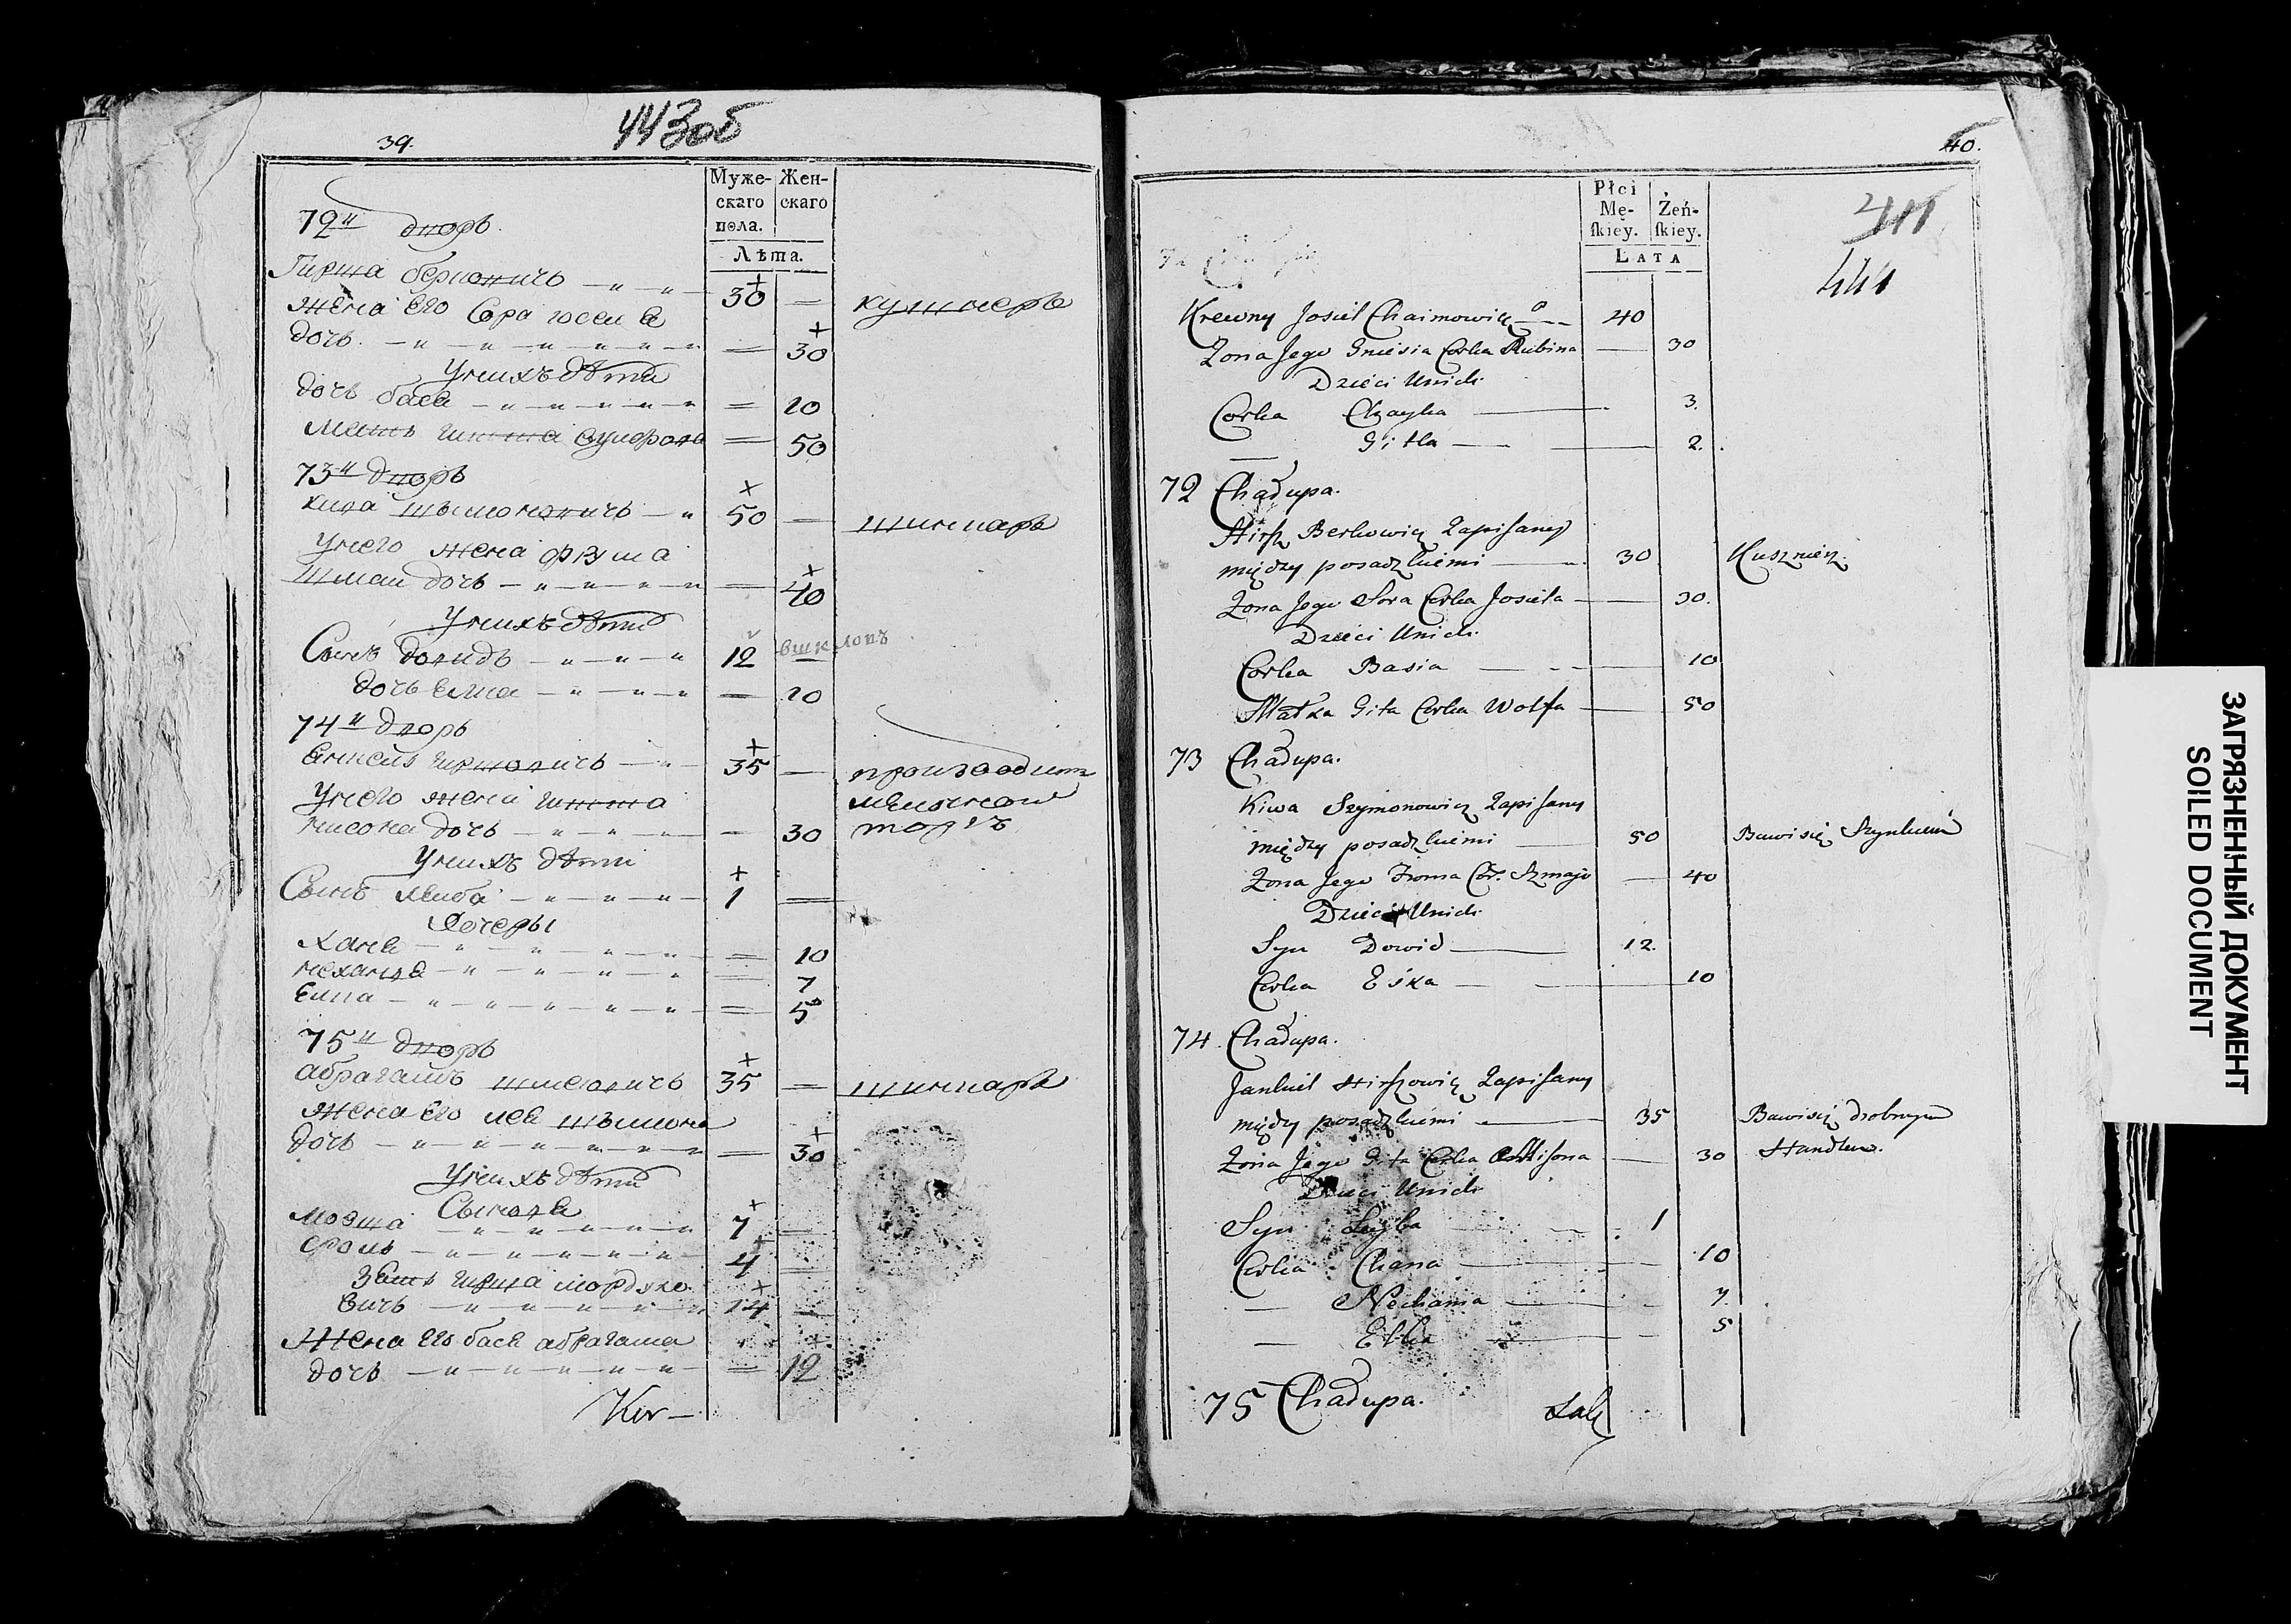 39.
443об
Муже-
скаго
пола.
Жен-
скаго
Лѣта.
72й дворъ.
Гирша берковичь 30
кушнеръ
жена его Сора иосела
дочь 30
У нихъ дѣти
дочь бася 10
Мать гитта вулфова 50
73й дворъ
кива шымоновичь 50
шинкарь
У него жена фрума
Шмаи дочь 40
У нихъ дѣти
Сынъ довидъ 12
дочь елка 10
74й дворъ
Янкель гиршовичь 35
производитъ
У него жена гитта
мелочной
нисона дочь 30
торгъ
У нихъ дѣти
Сынъ леиба 1
Дочеры
Хана 10
нехама 7
Елка 5
75й дворъ
абрагамъ 35
шинкарь
жена его лея шымона
дочь 30
У нихъ дѣти
Сыновя
мовша 7
сроль 4
Зять гирша мордухо
вичь 14
Жена его бася абрагама
дочь 12
40.
441
Płci
Mę-
ſkiey.
Żeń-
ſkiey.
LATA
Krewny Josiel Chaimowicz 40
Zona Jego Gniesia Corka Rubina 30
Dzieci Unich
Corka Chayka 3.
Gitla 2.
72 Chałupa.
Hirsz Berkowicz Zapisany
między posadzkiemi 30
Kusznierz.
Zona Jego Sora Corka Josiela 30.
Dzieci Unich
Corka Basia 10
Matka Gita Corka Wolfa 50
73 Chałupa.
Kiwa Szymonowicz Zapisany
między posadzkiemi 50
Bawi się Szynkiem
Zona Jego Froma Cor. Szmaja 40
Dzieci Unich
Syn Dowid 12.
Corka Eśka 10
74 Chałupa.
Jankiel Hirszowicz Zapisany
między posadzkiemi 35
Bawi się drobnym
Zona Jego Gita Corka 30
Handlem.
Dzieci Unich
Syn Leyba 1
Corka Chana 10
Nechama 7.
Elka 5
75 Chałupa.
ЗАГРЯЗНЕННЫЙ ДОКУМЕНТ
SOILED DOCUMENT